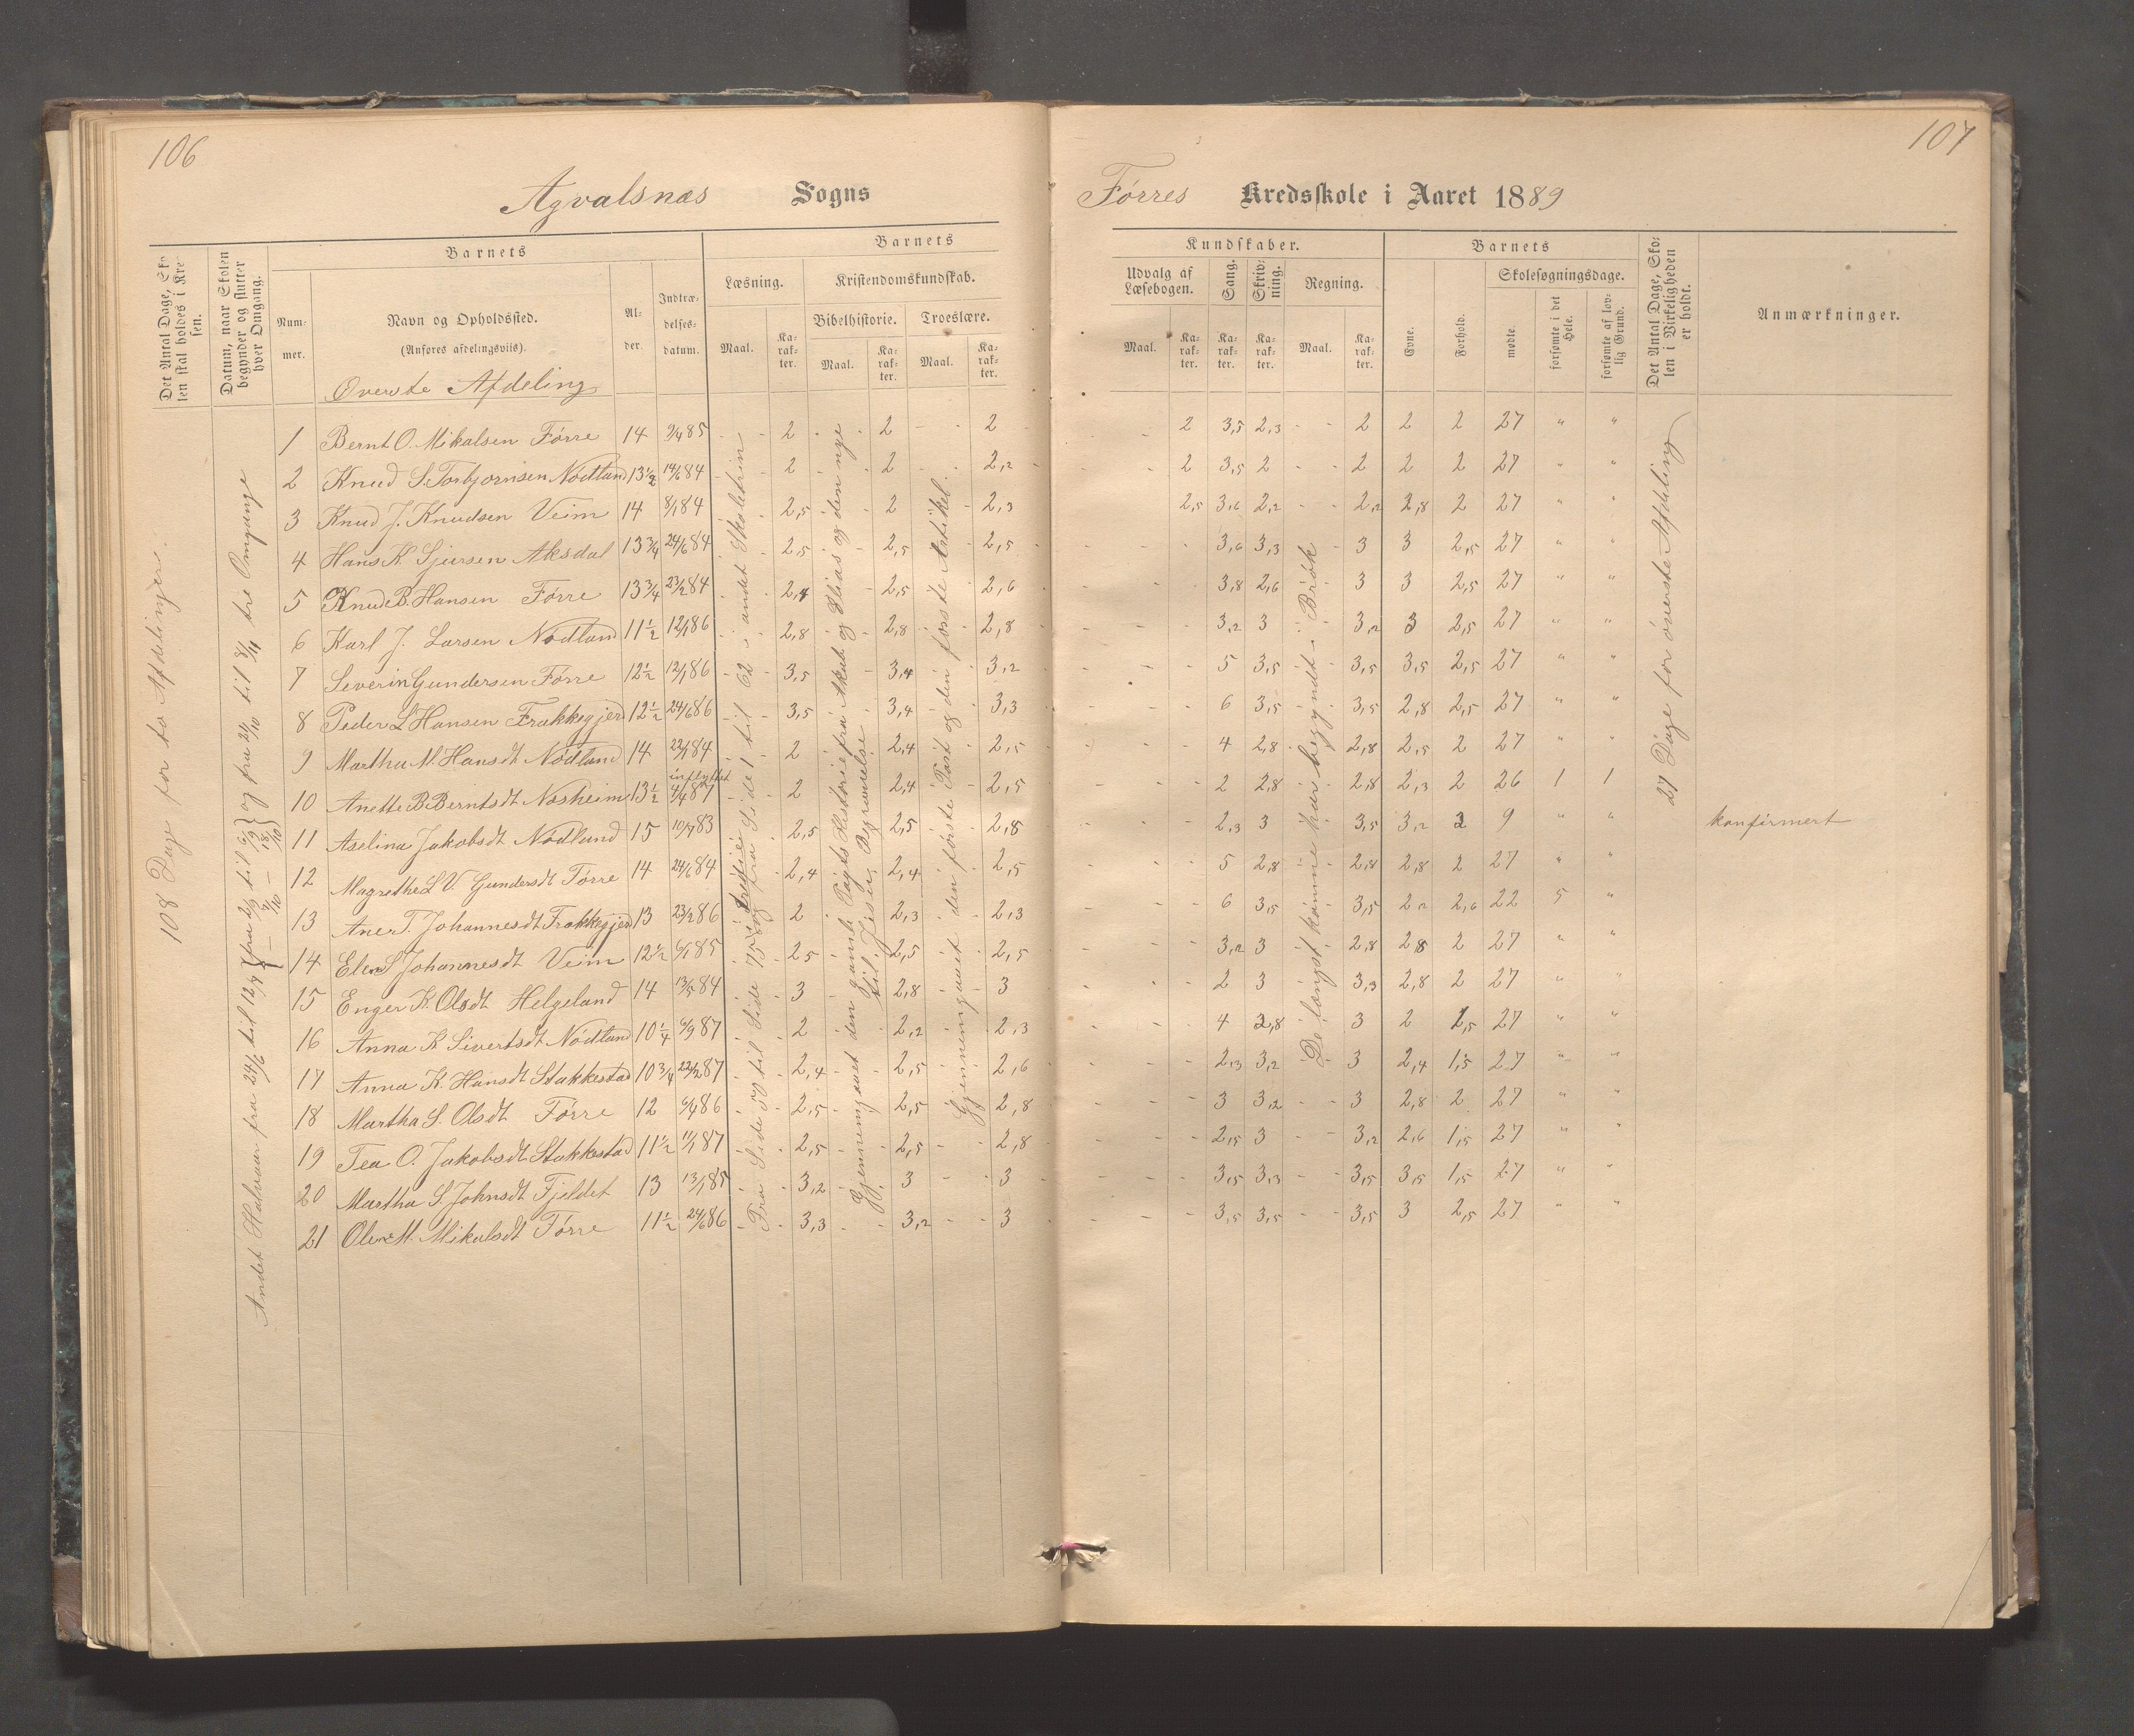 106
107
Agvalsnæs Sogns
Førres Kredsskole i Aaret 1889
Det Antal Dage, Skolen skal holdes i Kredsen.
Datum, naar Skolen begynder og slutter hver Omgang.
Barnets
Nummer.
Navn og Opholdssted.
(Anføres afdelingsviis).
Alder.
Indtrædelsesdatum.
Barnets
Læsning.
Kristendomskundskab.
Bibelhistorie. Troeslære.
Maal. Karakter. Maal. Karakter. Maal. Karakter.
Kundskaber.
Udvalg af Læsebogen.
Sang.
Skrivning.
Regning.
Maal. Karakter. Karakter. Karakter. Maal. Karakter.
Barnets
Evne.
Forhold.
Skolesøgningsdage.
mødte.
forsømte i det Hele.
forsømte af lovlig Grund.
Det Antal Dage, Skolen i Virkeligheden er holdt.
Anmærkninger.
Øverste Afdeling
1 Bernt O. Mikalsen Førre 14 9/4 85 2 2 2 2 3,5 2,3 2 2 2 27 " "
2 Knud S. Torbjørnsen Nødland 13 1/2 14/6 84 2 2 2,2 2 3,5 2 2 2 2 27 " "
3 Knud J. Knudsen Veim 14 8/1 84 2,5 2 2,3 2,5 3,6 2,2 2,2 2,8 2 27 " "
4 Hans K. Sjursen Aksdal 13 3/4 24/6 84 2,5 2,5 2,5 3,6 3,3 3 3 2,5 27 " "
5 Knud B. Hansen Førre 13 3/4 23/2 84 2,4 2,5 2,6 3,8 2,6 3 3 2,5 27 " "
6 Karl J. Larsen Nødland 11 1/2 12/1 86 2,8 2,8 2,8 3,2 3 3,2 3 2,5 27 " "
7 Severin Gundersen Førre 12 1/2 12/1 86 3,5 3,4 3,2 5 3,5 3,5 3,5 2,5 27 " "
8 Peder L Hansen Frakkegjerd 12 1/2 24/6 86 3,5 3,4 3,3 6 3,5 3,5 2,8 2,5 27 " "
9 Martha M. Hansdt Nødland 14 22/1 84 2 2,4 2,5 4 2,8 2,8 2,5 2 27 " "
indflyttet
10 Anette B. Berntsdt Næsheim 13 1/2 4/4 87 2 2,4 2,5 2 2,8 2,8 2,3 2 26 1 1
11 Aselina Jakobsdt Nødland 15 10/7 83 2,5 2,5 2,8 2,3 3 3,5 3,2 2 9 " " konfirmert
12 Magrethe L V. Gundersdt Førre 14 24/6 84 2,4 2,4 2,5 5 2,8 2,8 2,8 2 27 " "
13 Ane T. Johannesdt Frakkegjerd 13 23/2 86 2 2,3 2,3 6 3,5 3,5 2,2 2,6 22 5 "
14 Elen S Johannesdt Veim 12 1/2 6/1 85 2,5 2,5 2,5 3,2 3 2,8 2,8 2 27 " "
15 Enger K. Olsdt Helgeland 14 13/5 84 3 2,8 3 2 3 3,3 2,8 2 27 " "
16 Anna K Sivertsdt Nødland 10 1/4 6/9 87 2 2,2 2,3 4 2,8 3 2 1,5 27 " "
17 Anna K. Hansdt Stakkestad 10 3/4 22/2 87 2,4 2,5 2,6 2,3 3,2 3 2,4 1,5 27 " "
18 Martha S. Olsdt Førre 12 6/4 86 2,5 2,5 2,8 3 3,2 3 2,8 2 27 " "
19 Tea O. Jakobsdt Stakkestad 11 1/2 11/1 87 2,5 2,5 2,8 2,5 3 3,2 2,6 1,5 27 " "
20 Martha S. Johnsdt Fjeldet 13 13/1 85 3,2 3 3 3,5 3,3 3,5 3,5 1,5 27 " "
21 Olene M. Mikalsdt Førre 11 1/2 24/6 86 3,3 3,2 3 3,5 3,5 3,5 3 2,5 27 " "
108 Dage for to Afdelinger.
Andet Halvaar fra 24/6 til 12/7 og fra 21/10 til 8/11 tre Omgange
Fra Side 59 til Side 75 og fra Side 1 til 62 i andet Skoletrin
Gjennemgaaet den gamle Pagts Historie fra Akab og Elias og den nye til Jesu Begravelse
Gjennemgaaet den første Part og den første Artikel.
De længst komne har begyndt i Brøk
27 Dage for øverste Afdeling